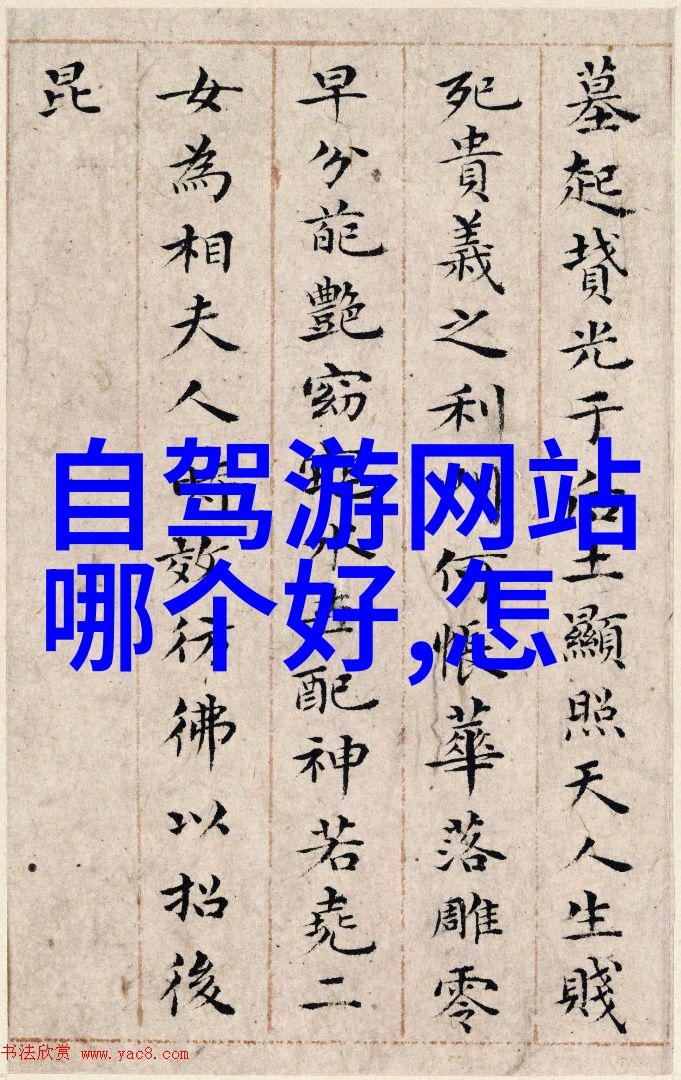 墓起墳光于后土顯照天人生賤
死貴義之利門何悵華落雕零
早分葩艷窈窕永世配神若堯二
女為相夫人時效彷彿以招後
昆
自驾游网站
哪个好,怎
书法欣赏 www.yac8.com